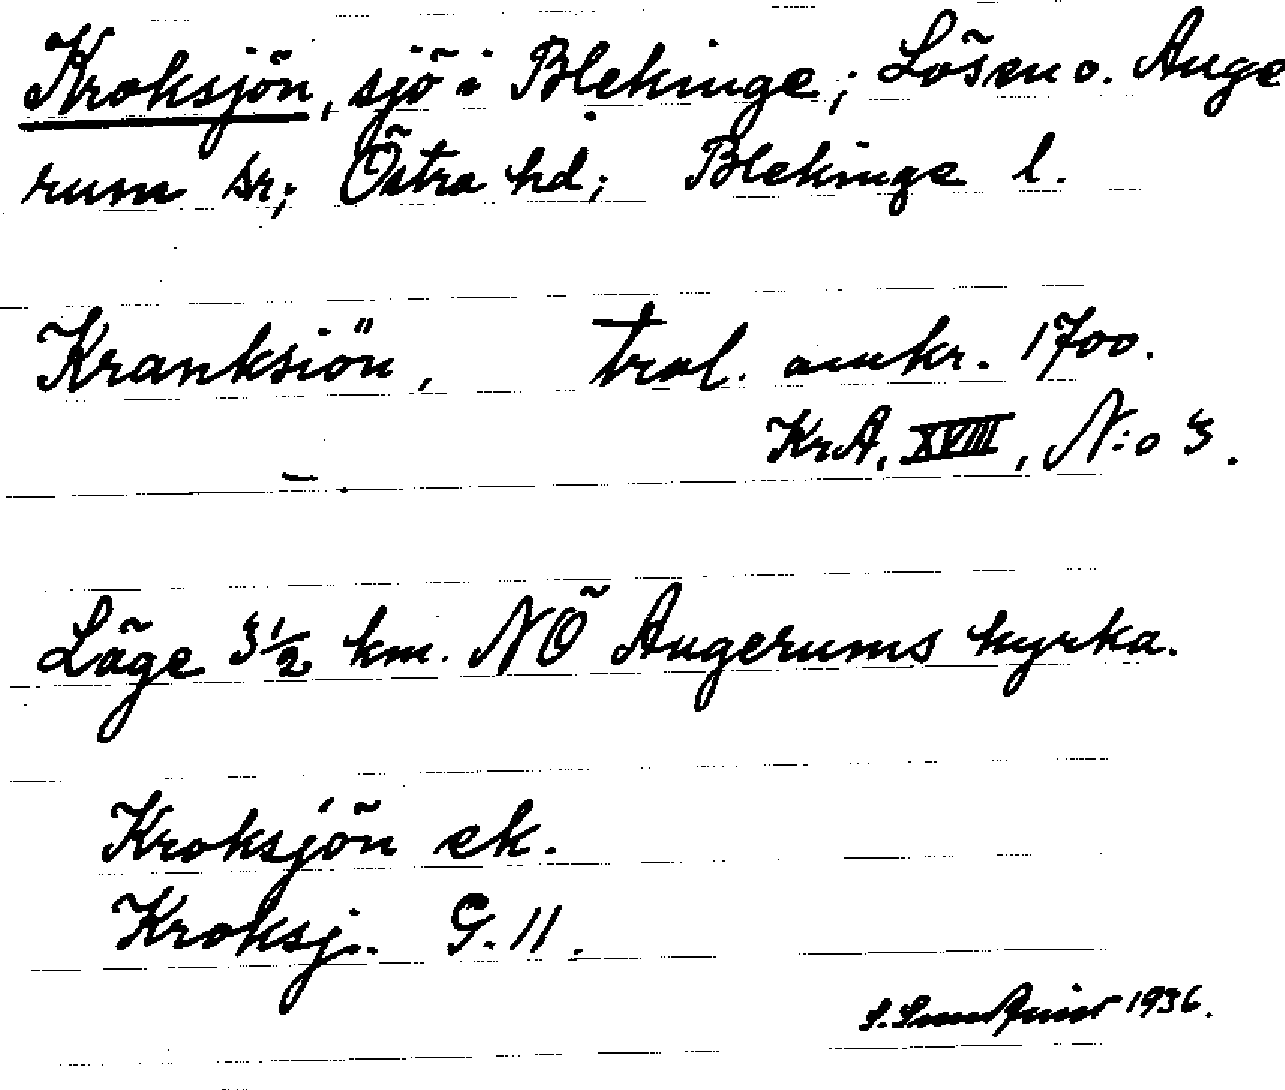 Kroksjön, sjö i Blekinge; Lösen o. Auge
rum sr; Östra hd; Blekinge l.
Kranksiön, trol. omkr. 1700.
KrA, XVIII, N:o 3.
Läge 3½ km. NÖ Augerums kyrka.
Kroksjön ek.
Kroksj. G. 11.
1936.